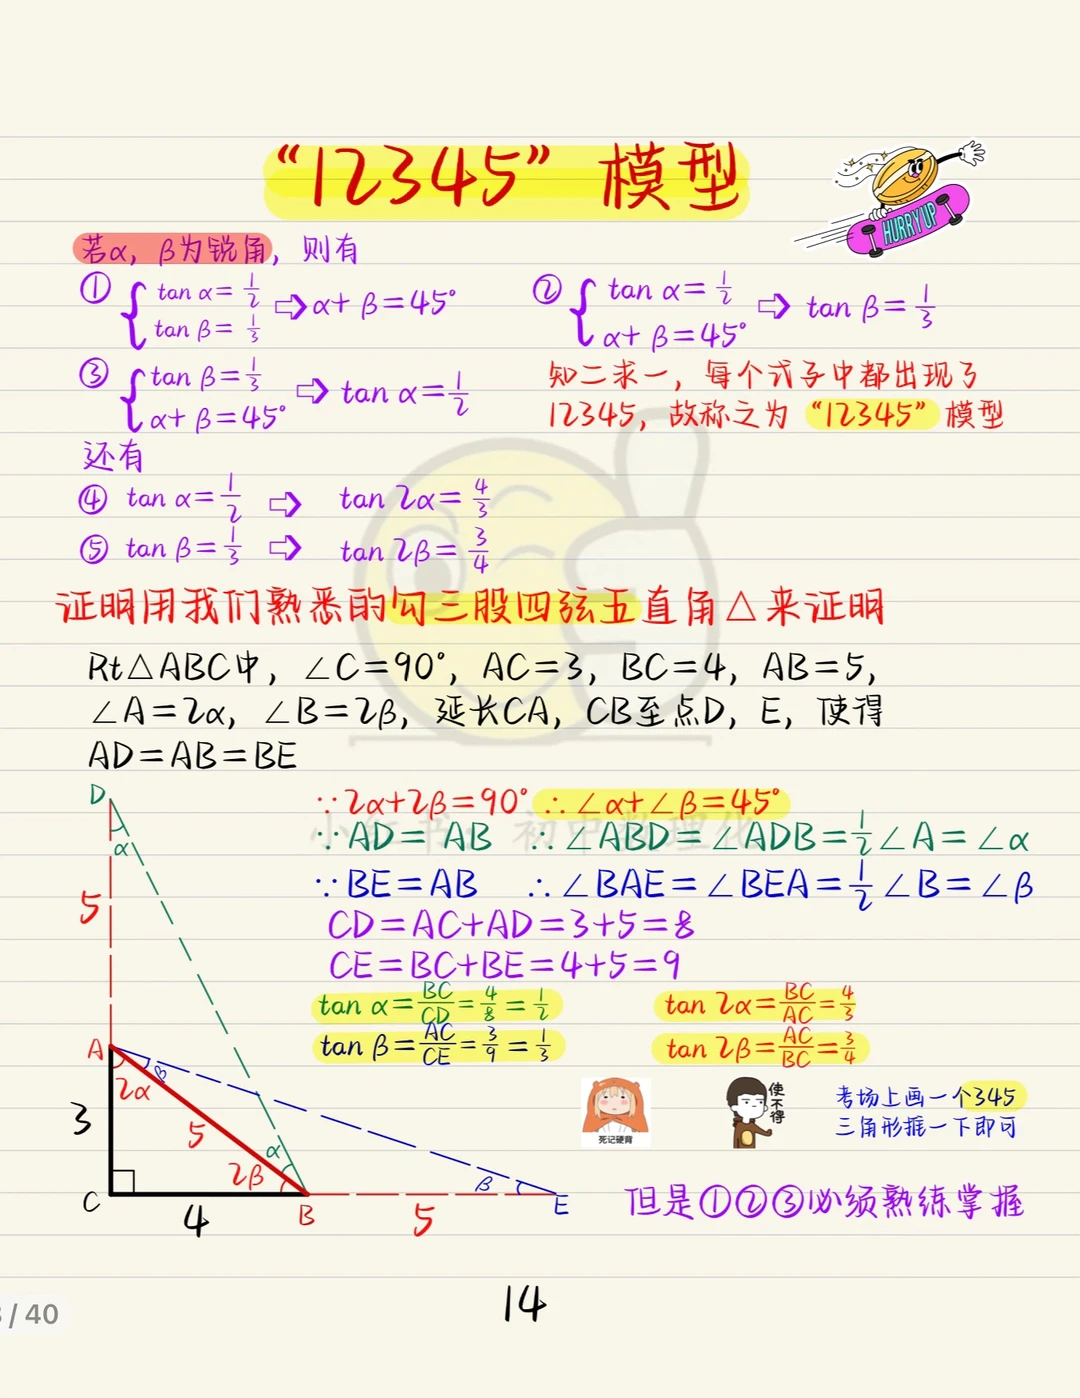 “12345”模型
HURRY UP
若α, β为锐角, 则有
① { tan α=1/2 tan β=1/3 ⇨ α+β=45°
② { tan α=1/2 α+β=45° ⇨ tan β=1/3
③ { tan β=1/3 α+β=45° ⇨ tan α=1/2
知二求一, 每个式子中都出现了
12345, 故称之为 “12345” 模型
还有
④ tan α=1/2 ⇨ tan 2α=4/3
⑤ tan β=1/3 ⇨ tan 2β=3/4
证明用我们熟悉的勾三股四弦五直角△来证明
Rt△ABC中, ∠C=90°, AC=3, BC=4, AB=5,
∠A=2α, ∠B=2β, 延长CA, CB至点D, E, 使得
AD=AB=BE
∵2α+2β=90° ∴∠α+∠β=45°
小红书: 初中数理化
∵AD=AB ∴∠ABD=∠ADB=1/2∠A=∠α
∵BE=AB ∴∠BAE=∠BEA=1/2∠B=∠β
CD=AC+AD=3+5=8
CE=BC+BE=4+5=9
tan α=BC/CD=4/8=1/2
tan 2α=BC/AC=4/3
tan β=AC/CE=3/9=1/3
tan 2β=AC/BC=3/4
D
α
5
A
2α
β
3
5
α
2β
β
C
4
B
5
E
死记硬背
使不得
考场上画一个345
三角形推一下即可
但是①②③必须熟练掌握
14
/ 40